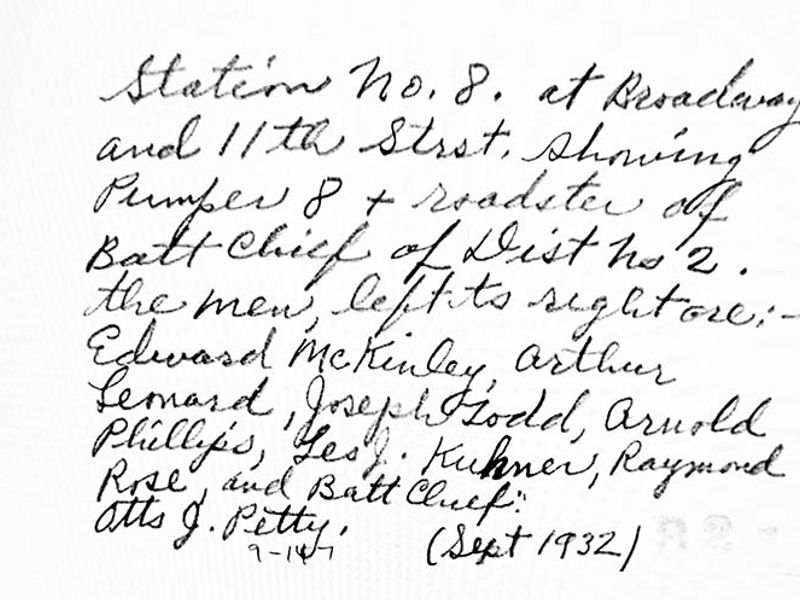 Station No. 8. at Broadway
and 11th Strst. showing
Pumper 8 + roadster of
Batt Chief of Dist No 2.
the men, left to right are:-
Edward McKinley, Arthur
Leonard, Joseph Todd, Arnold
Phillips, Les J. Kuhner, Raymond
Rose, and Batt Chief:
Otts J. Petty.
(Sept 1932)